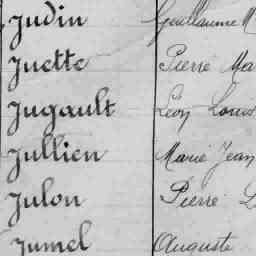 Judin Guillaume M
Juette Pierre Ma
Jugault Léon Louis
Jullien Marie Jean
Julon Pierre L
Jumel Auguste